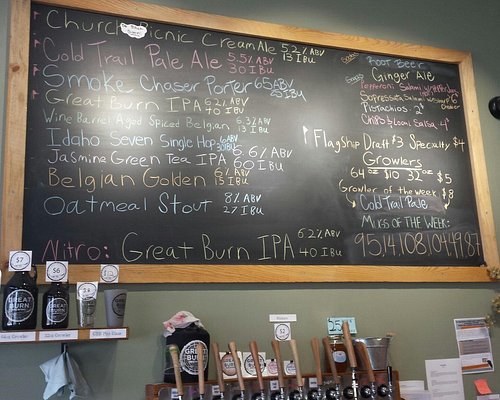 Church Picnic Cream Ale 5.2% ABV 13 IBU
Cold Trail Pale Ale 5.5% ABV 30 IBU
Smoke Chaser Porter 6.5 ABV 25 IBU
Great Burn IPA 6.2% ABV 40 IBU
Wine Barrel Aged Spiced Belgian 6.3% ABV 13 IBU
Idaho Seven Single Hop 6% ABV
Jasmine Green Tea IPA 6.6% ABV 60 IBU
Belgian Golden 6% ABV 15 IBU
Oatmeal Stout 8% ABV 27 IBU
Nitro: Great Burn IPA 6.2% ABV 40 IBU
Root Beer
Ginger Ale
Pepperoni Salami
Sopressata Salami
Pistachios 2
Chips & Local Salsa 4
Flagship Draft $3 Specialty $4
Growlers
64 oz $10 32 oz $5
Growler of the week $8
Cold Trail Pale
Mugs of the Week:
95, 14, 108, 104, 49, 87
$7
$6
GREAT BURN
GREAT BURN
$2
25